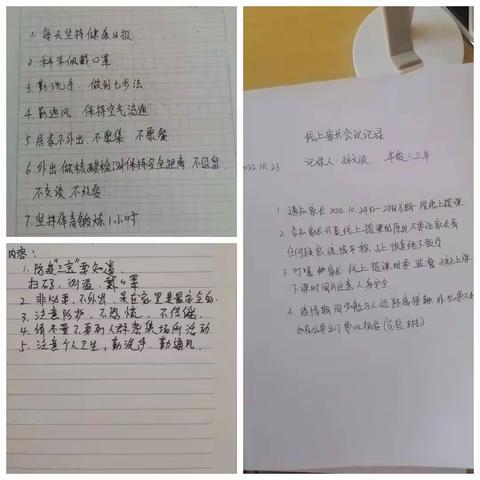 1. 每天坚持健康日报
2. 科学佩戴口罩
3. 勤洗手、做到七步法
4. 勤通风、保持空气流通
5. 居家不外出、不聚集、不聚餐
6. 外出做核酸检测保持安全距离、不逗留
不交谈、不玩耍
7. 坚持体育锻炼1小时
内容：
1. 防疫"三宝"要知道
扫码、测温、戴口罩
2. 非必要，不外出，呆在家里是最安全的
3. 注意防护，不恐慌，不信谣
4. 尽量不要到人群聚集场所活动
5. 注意个人卫生，勤洗手，勤通风.
线上家长会议记录
2022.10.23 记录人 年级：三年
1 通知家长 2022.10.24日-28日 线上授课
2 告知家长开展线上授课的原因不要让家长有
任何顾虑 疫情平稳 马上恢复线下教学
3 叮嘱 家长 线上授课时要监督 孩子上课
下课时间并注意人身安全
4 疫情期间 与人近距离接触 非必要不